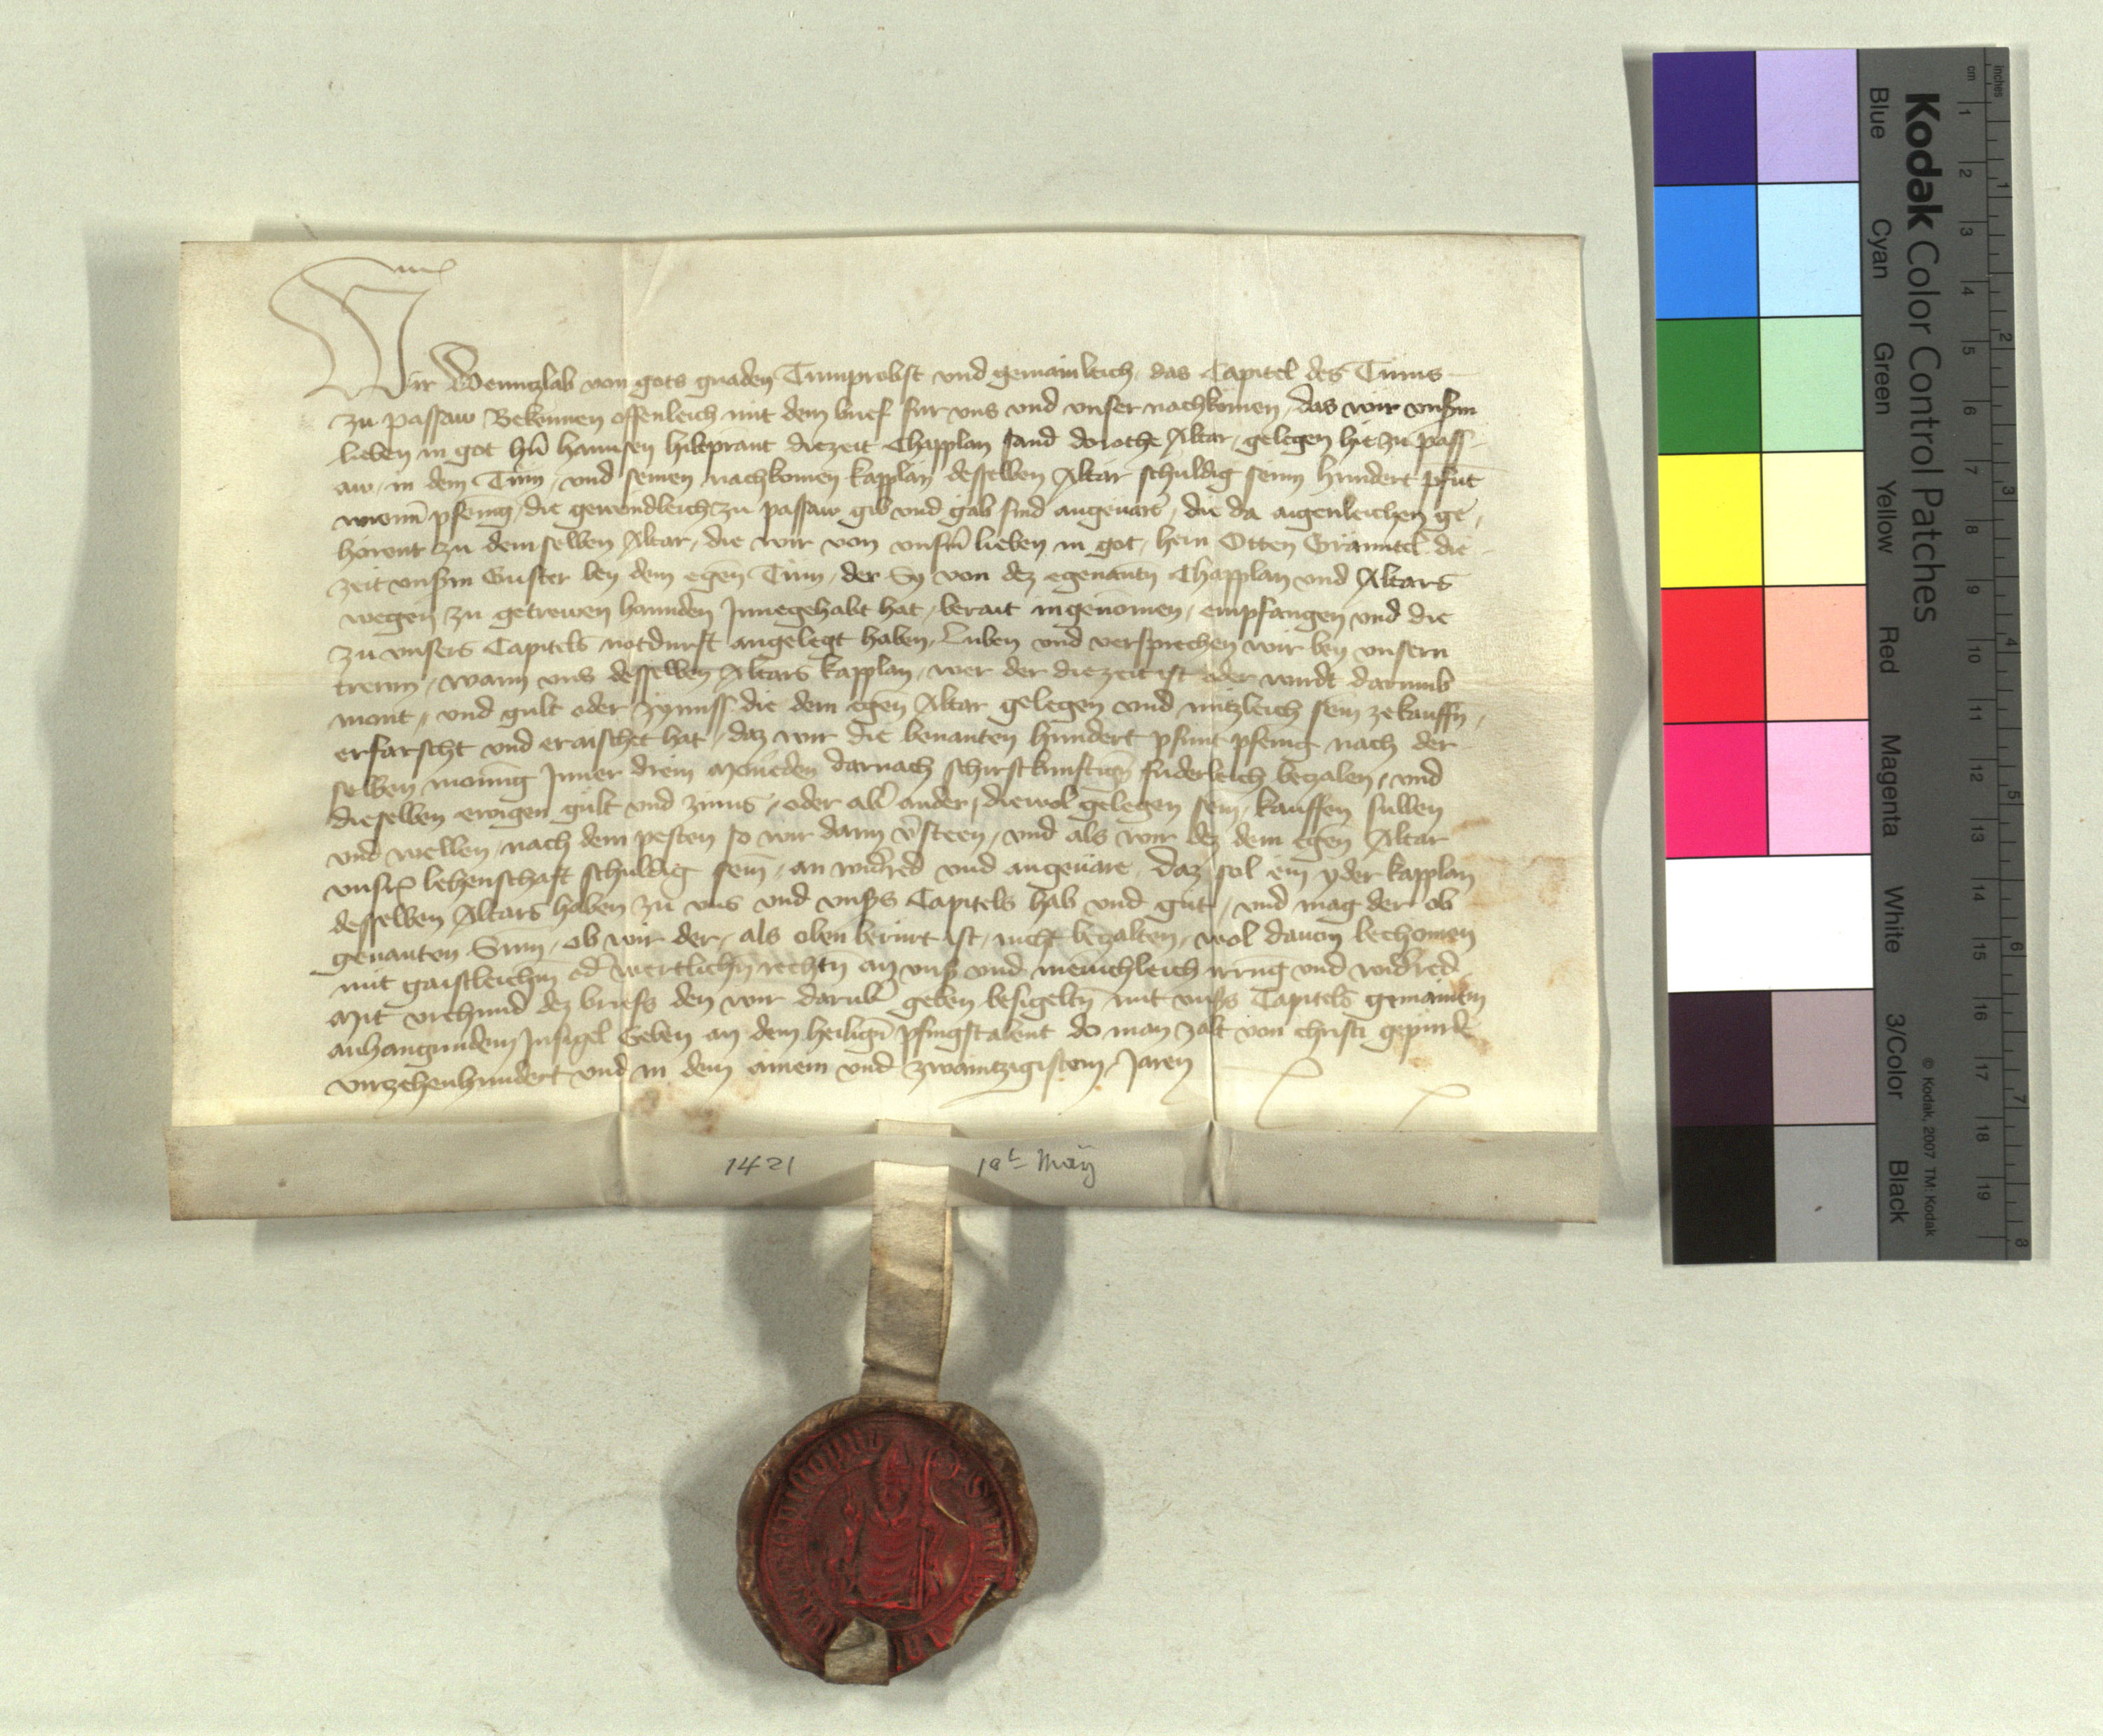 Wir Wenntzlab von gots gnaden Tumprobst vnd gemainleich das Capitel des Tums
zu passaw Bekennen offenleich mit dem brief fur vns vnd vnser nachkomen, das wir vnserm
lieben in got hern hannsen hiltprant diezeit Chapplan sand dorothe Altar, gelegen hie zu pass-
aw, in dem Tum, vnd seinen nachkomen kapplan desselben Altar schuldig seinn hundert pfunt
wienn pfening, die gewondleich zu passaw gib vnd gab sind angeuars, die da aigenleichen ge-
horent zu demselben Altar, die wir von vnserm lieben in got, hern Otten die
zeit vnserm Guster bey dem egen Tum, der Sy von dez egenantn Chapplan vnd Altars
wegen zu getrewen hannden Innegehabt hat, berait ingenomen, empfangen vnd die
zu vnsers Capitels notdurft angelegt haben, Luben vnd versprechen wir bey vnsern
trewn, wann vns desselben Altars kapplan, wer der diezeit ist oder wirdt darumb
mont, vnd gult oder zynnss die dem egen Altar gelegen vnd nützleich sein zekauffn,
erfarscht vnd eraischet hat, daz wir die benanten hundert pfunt pfening nach der
selben monung Inner drein Moneden darnach schirstkunftign furderleich betzalen, vnd
dieselben ewigen gült vnd zinns, oder aber ander, diewol gelegen sein, kauffen sullen
vnd wellen, nach dem pesten so wir dann versteen, vnd als wir dez dem egen Altar
vnser lehenschaft schuldig sein, an widerred vnd angeuäre, Daz sol ein yder kapplan
desselben Altars haben zu vns vnd vnsers Capitels hab vnd gut, vnd mag der ob
genanten Sum, ob wir der, als oben berürt ist, nicht betzalten, wol dauon bechomen
mit gaistleichen oder werltlichn rechtn an vnser vnd menichleich irrung vnd widerred
Mit vrchund dez briefs den wir daruber geben besigeltn mit vnsers Capitels gemainem
anhangundem Insigel Geben an dem heiligen pfingstabent do man zalt von christi gepurde
virzehenhundert vnd in dem ainem vnd zwaintzigistem Jaren
1421 10t Maÿ
Kodak Color Control Patches
Blue Cyan Green Yellow Red Magenta White 3/Color Black
© Kodak, 2007 TM: Kodak
inches 1 2 3 4 5 6 7 8
cm 1 2 3 4 5 6 7 8 9 10 11 12 13 14 15 16 17 18 19